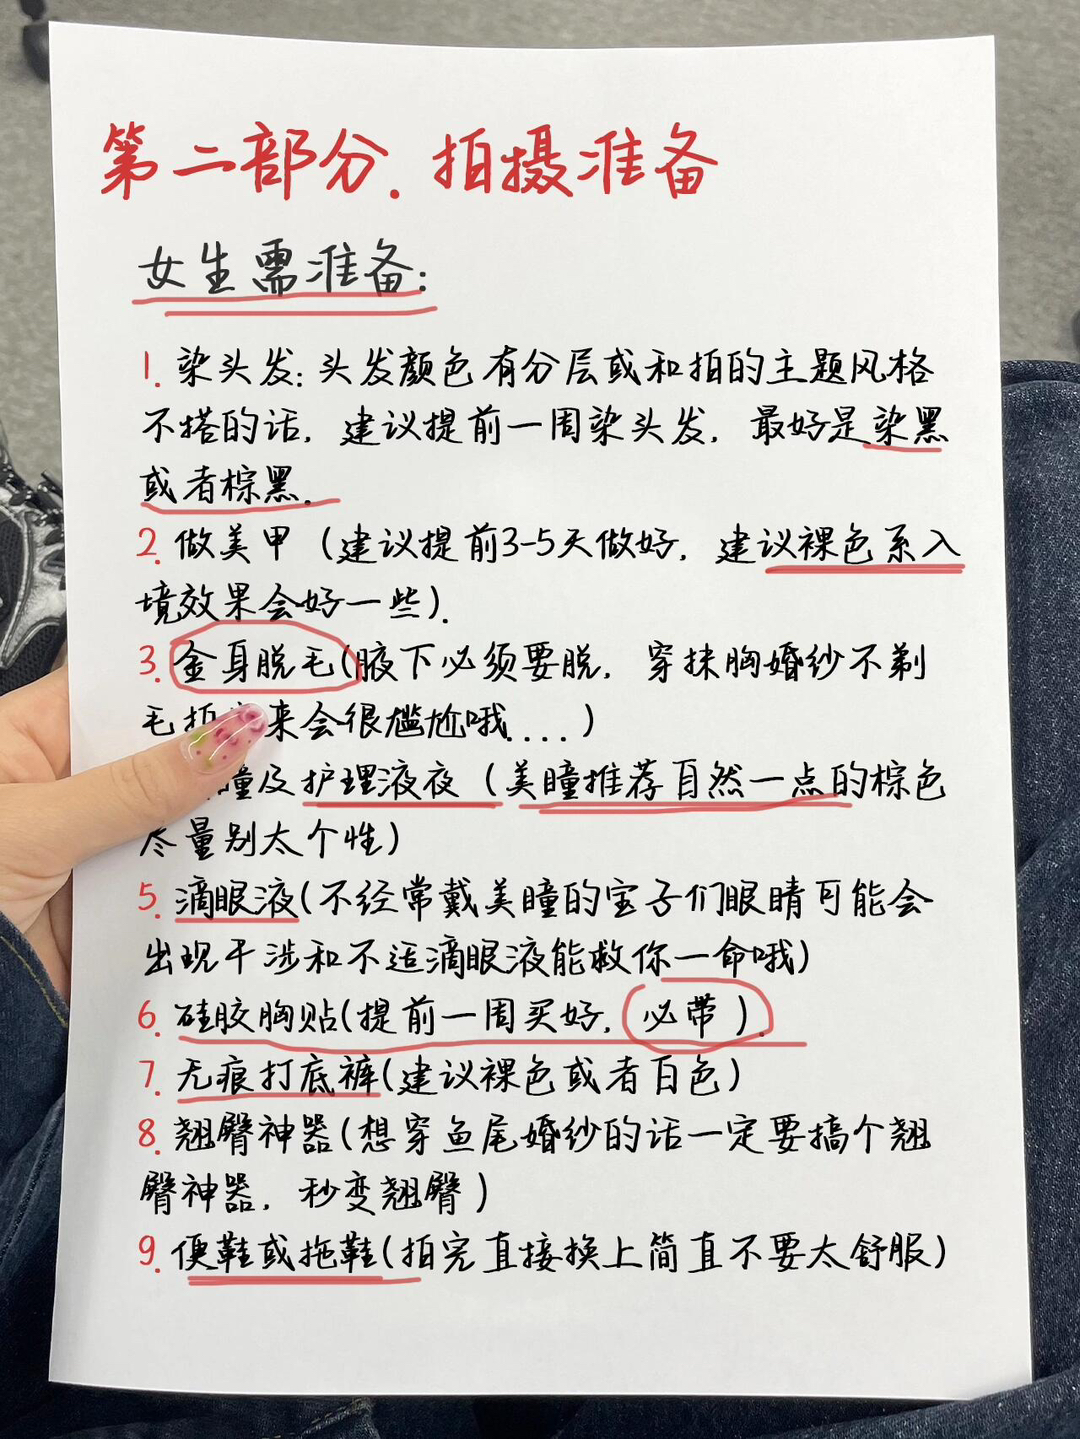 第二部分. 拍摄准备
女生需准备:
1. 染头发: 头发颜色有分层或和拍的主题风格
不搭的话, 建议提前一周染头发, 最好是染黑
或者棕黑.
2. 做美甲 (建议提前3-5天做好, 建议裸色系入
境效果会好一些).
3. 全身脱毛(腋下必须要脱, 穿抹胸婚纱不剃
毛拍 来会很尴尬哦....)
瞳及护理液夜 (美瞳推荐自然一点的棕色
尽量别太个性)
5. 滴眼液(不经常戴美瞳的宝子们眼睛可能会
出现干涉和不适滴眼液能救你一命哦)
6. 硅胶胸贴(提前一周买好, 必带).
7. 无痕打底裤(建议裸色或者百色)
8. 翘臀神器(想穿鱼尾婚纱的话一定要搞个翘
臀神器, 秒变翘臀)
9. 便鞋或拖鞋(拍完直接换上简直不要太舒服)